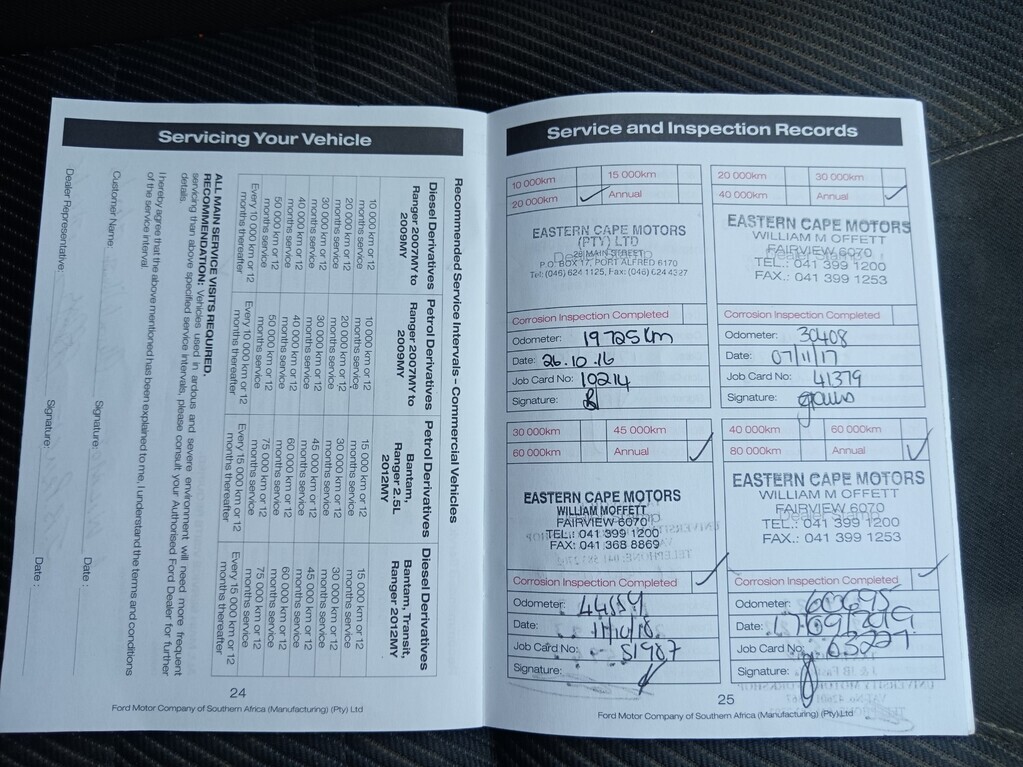 Servicing Your Vehicle
Recommended Service Intervals – Commercial Vehicles
Diesel Derivatives
Ranger 2007MY to
2009MY
10 000 km or 12
months service
20 000 km or 12
months service
30 000 km or 12
months service
40 000 km or 12
months service
50 000 km or 12
months service
Every 10 000 km or 12
months thereafter
Petrol Derivatives
Ranger 2007MY to
2009MY
10 000 km or 12
months service
20 000 km or 12
months service
30 000 km or 12
months service
40 000 km or 12
months service
50 000 km or 12
months service
Every 10 000 km or 12
months thereafter
Petrol Derivatives
Bantam,
Ranger 2.5L
2012MY
15 000 km or 12
months service
30 000 km or 12
months service
45 000 km or 12
months service
60 000 km or 12
months service
75 000 km or 12
months service
Every 15 000 km or 12
months thereafter
Diesel Derivatives
Bantam, Transit,
Ranger 2012MY
15 000 km or 12
months service
30 000 km or 12
months service
45 000 km or 12
months service
60 000 km or 12
months service
75 000 km or 12
months service
Every 15 000 km or 12
months thereafter
ALL MAIN SERVICE VISITS REQUIRED.
RECOMMENDATION: Vehicles used in ardous and severe environment will need more frequent
servicing than above specified service intervals, please consult your Authorised Ford Dealer for further
details.
I hereby agree that the above mentioned has been explained to me, I understand the terms and conditions
of the service interval.
Customer Name: Signature: Date :
Dealer Representative: Signature: Date :
24
Ford Motor Company of Southern Africa (Manufacturing) (Pty) Ltd
Service and Inspection Records
10 000km 15 000km
20 000km Annual
EASTERN CAPE MOTORS
(PTY) LTD
28 MAIN STREET
P.O. BOX 17, PORT ALFRED 6170
Tel: (046) 624 1125, Fax: (046) 624 4227
Corrosion Inspection Completed
Odometer: 19725km
Date: 26.10.16
Job Card No: 10214
Signature:
20 000km 30 000km
40 000km Annual
EASTERN CAPE MOTORS
WILLIAM M OFFETT
FAIRVIEW 6070
TEL.: 041 399 1200
FAX.: 041 399 1253
Corrosion Inspection Completed
Odometer: 30408
Date: 07/11/17
Job Card No: 41379
Signature:
30 000km 45 000km
60 000km Annual
EASTERN CAPE MOTORS
WILLIAM MOFFETT
FAIRVIEW 6070
TEL.: 041 399 1200
FAX: 041 368 8869
Corrosion Inspection Completed
Odometer:
Date: 11/10/18
Job Card No: 51987
Signature:
40 000km 60 000km
80 000km Annual
EASTERN CAPE MOTORS
WILLIAM M OFFETT
FAIRVIEW 6070
TEL.: 041 399 1200
FAX.: 041 399 1253
Corrosion Inspection Completed
Odometer: 60695
Date:
Job Card No: 63227
Signature:
25
Ford Motor Company of Southern Africa (Manufacturing) (Pty) Ltd